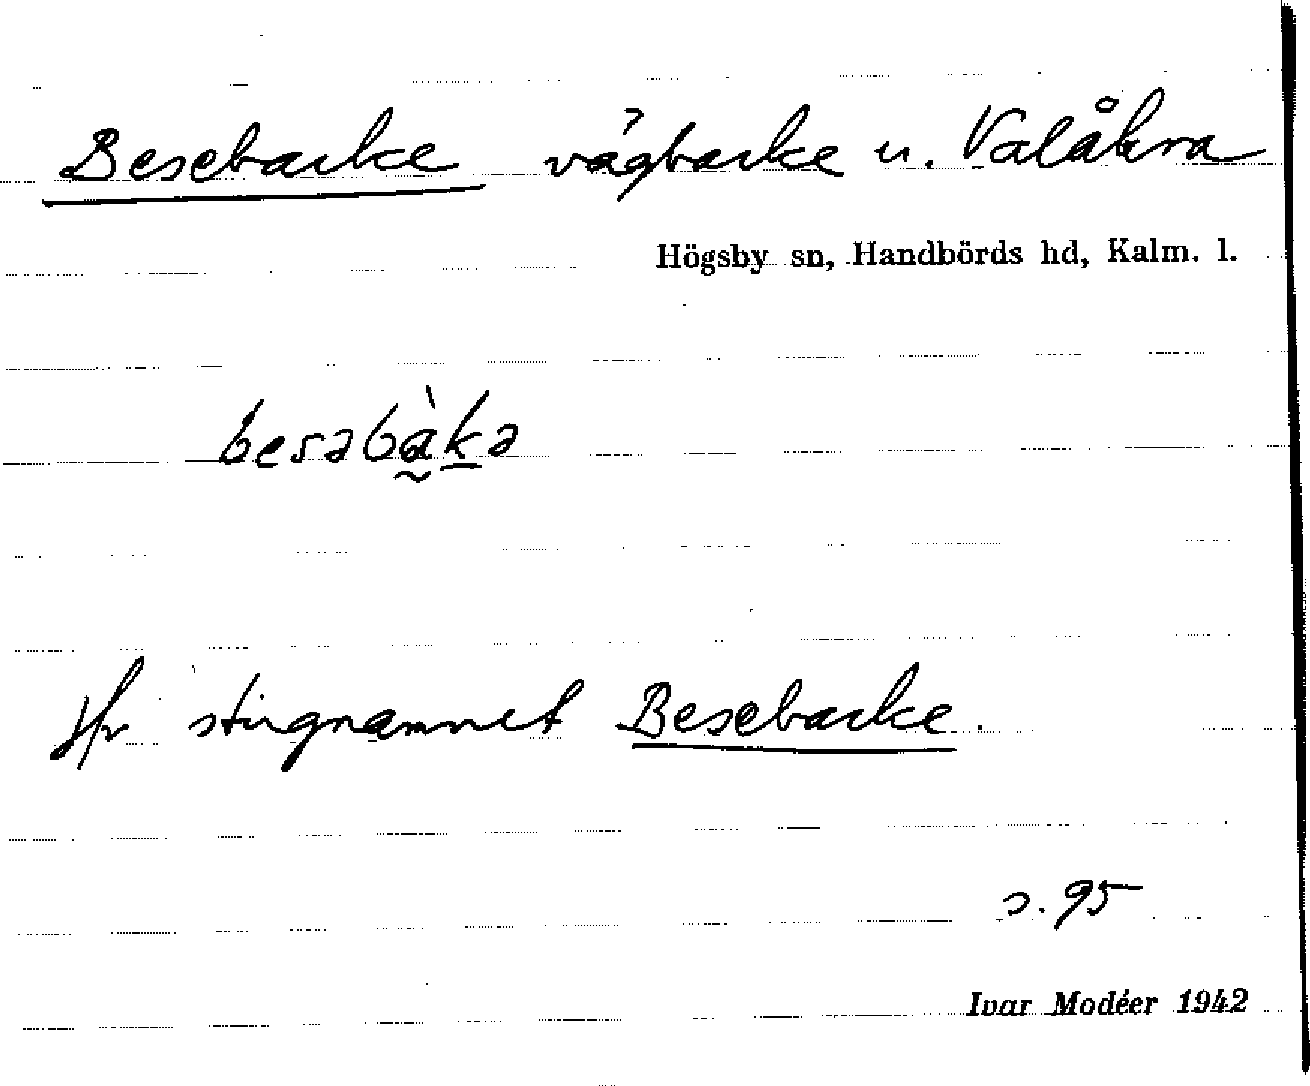 Besebacke vägbacke u. Valåkra
Högsby sn, Handbörds hd, Kalm. l.
besəbàkə
Jfr stignamnet Besebacke.
s. 95
Ivar Modéer 1942